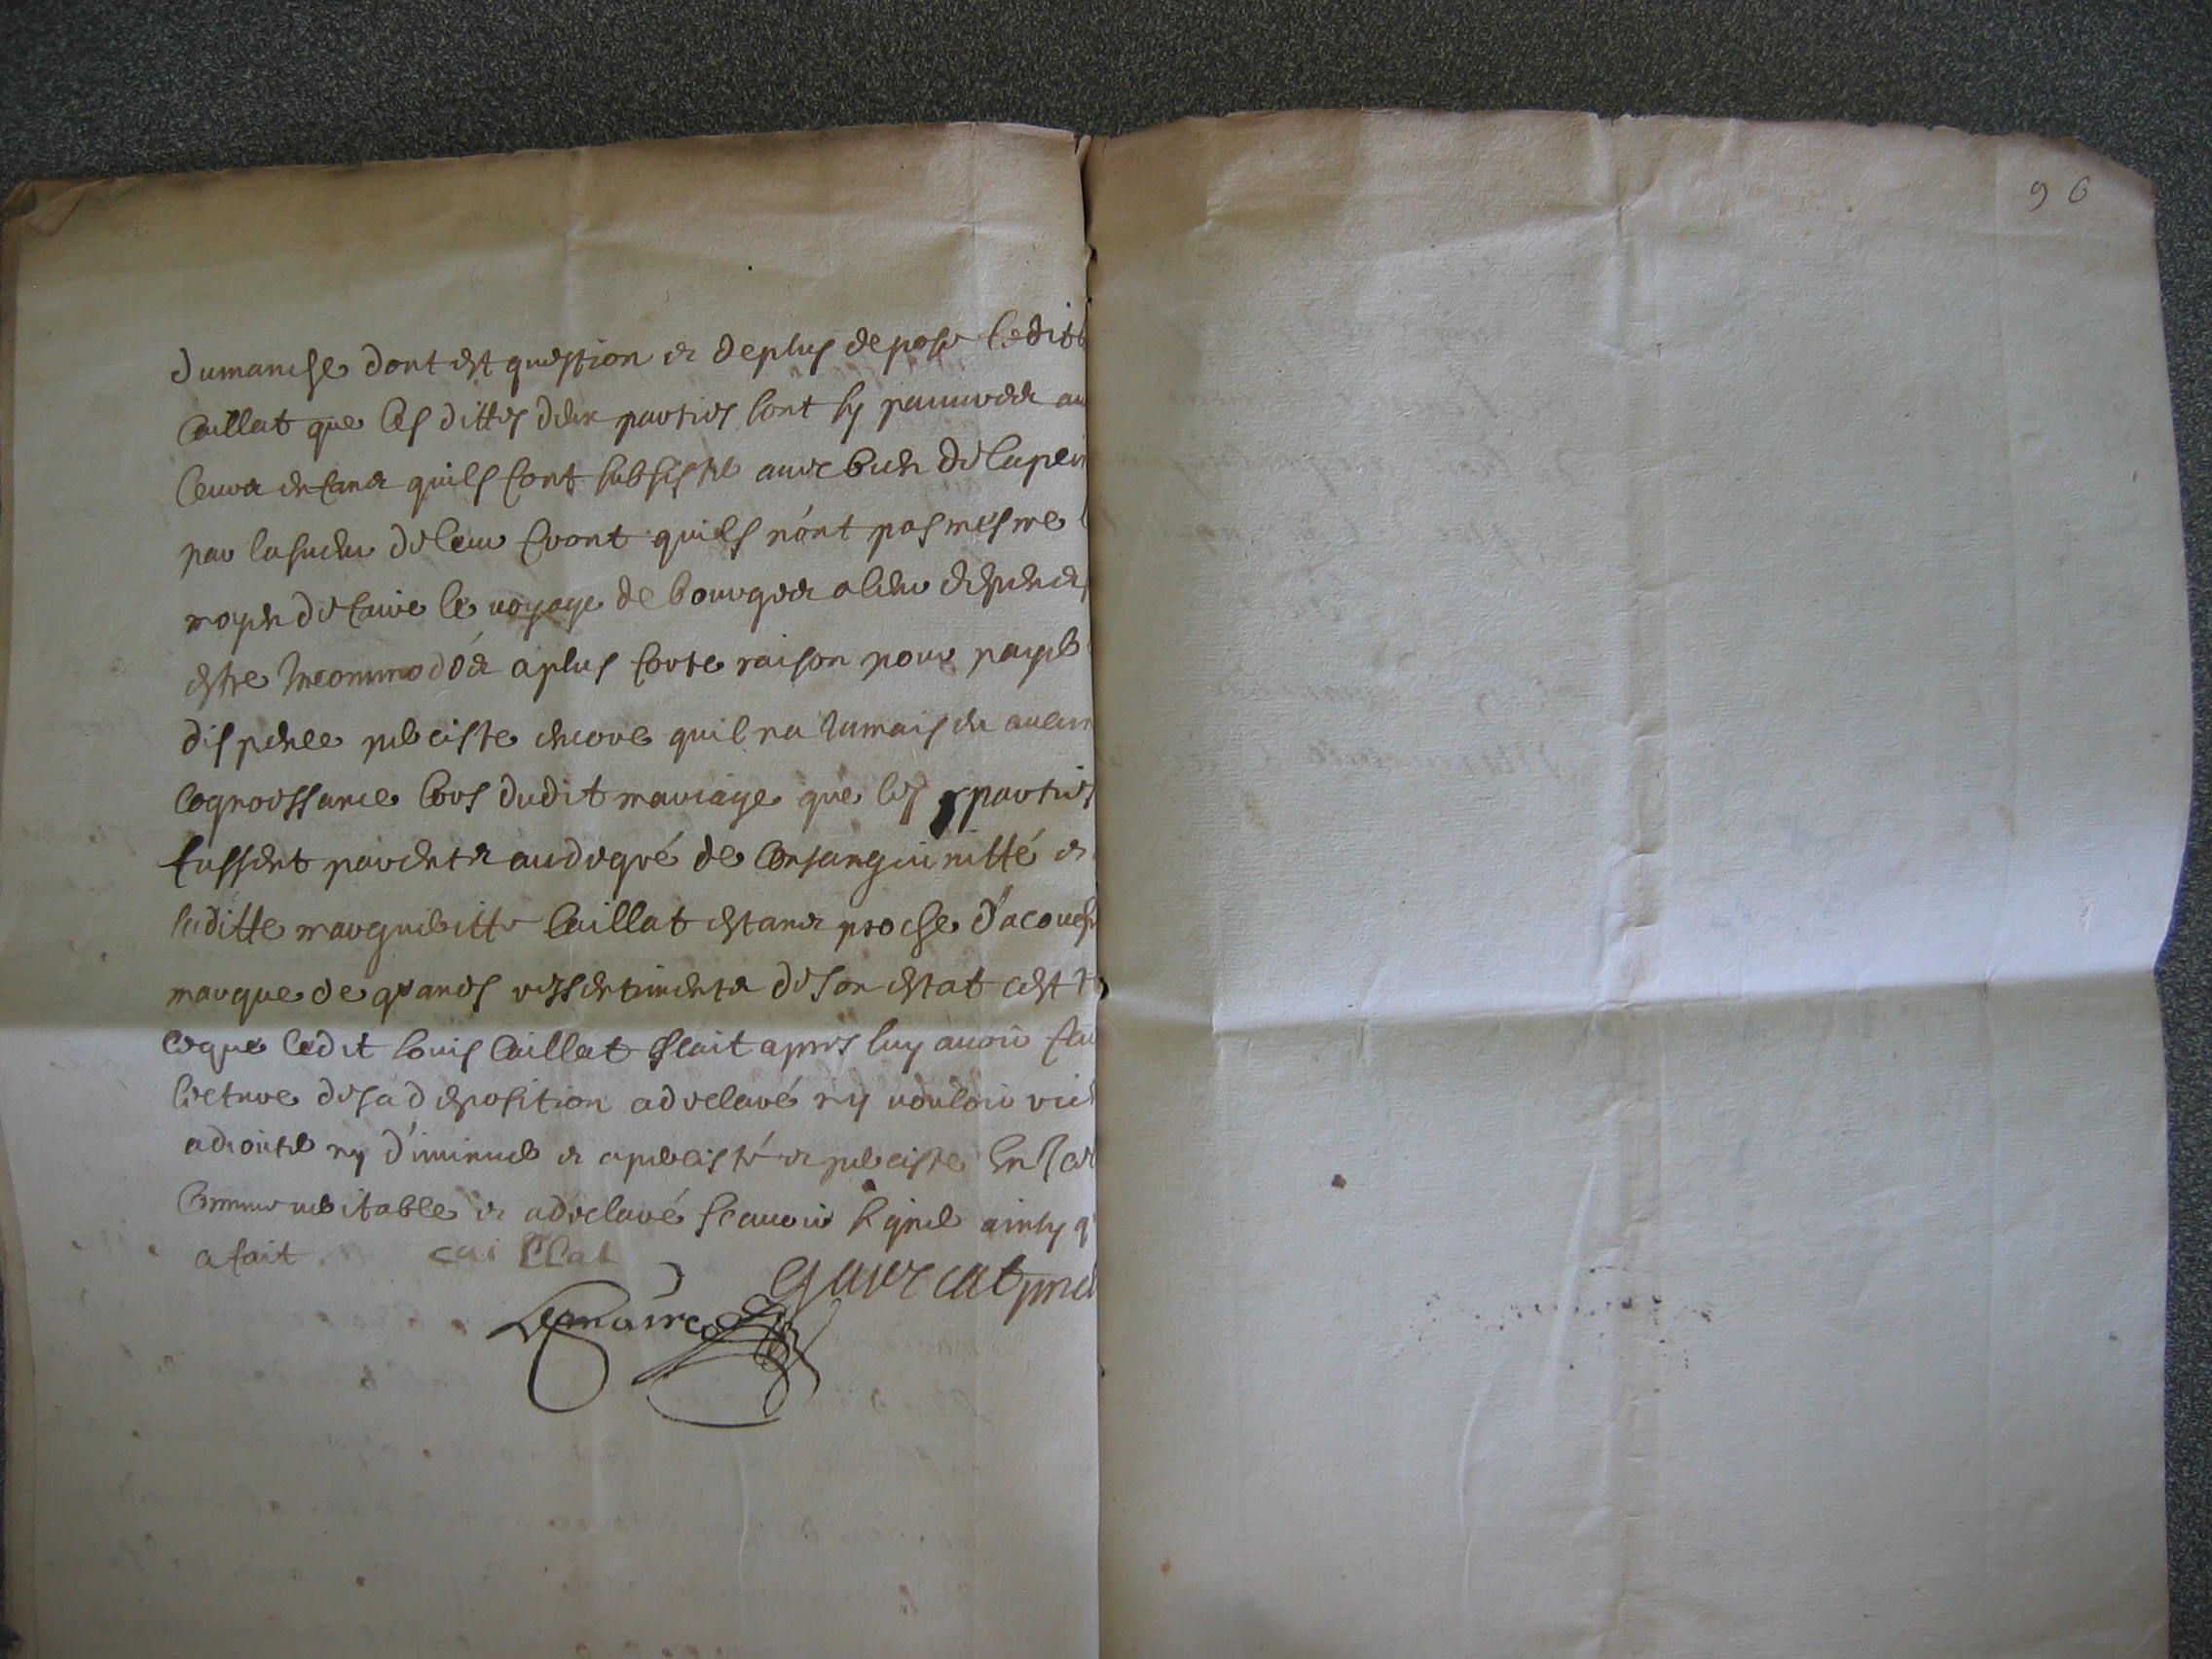 96
dumariage dont est question et deplus depose ledit
Caillat que les dittes deux parties sont sy pauvres
leurs enfans quils font subsister avec bien de la pei
par la sueur de leur front quils n'ont pas mesme
moyen de faire le voyage de bourges a leur despens
estre Incommodés a plus forte raison pour payer
dispense persiste encore quil na Jamais eu aucun
cognoissance lors dudit mariage que les parties
fussent parents au degré de Consanguinitté et
laditte margueritte Caillat estant proche d'acouch
marque de grands ressentiments de son estat cest
ce que ledit louis Caillat scait apres luy avoir fai
lecture de sa deposition a declaré ny vouloir rien
adiouter ny d'iminuer et a persisté et persiste
Comme veritable et a declaré scavoir signer ainsy q
a fait
caillat
Lemaire